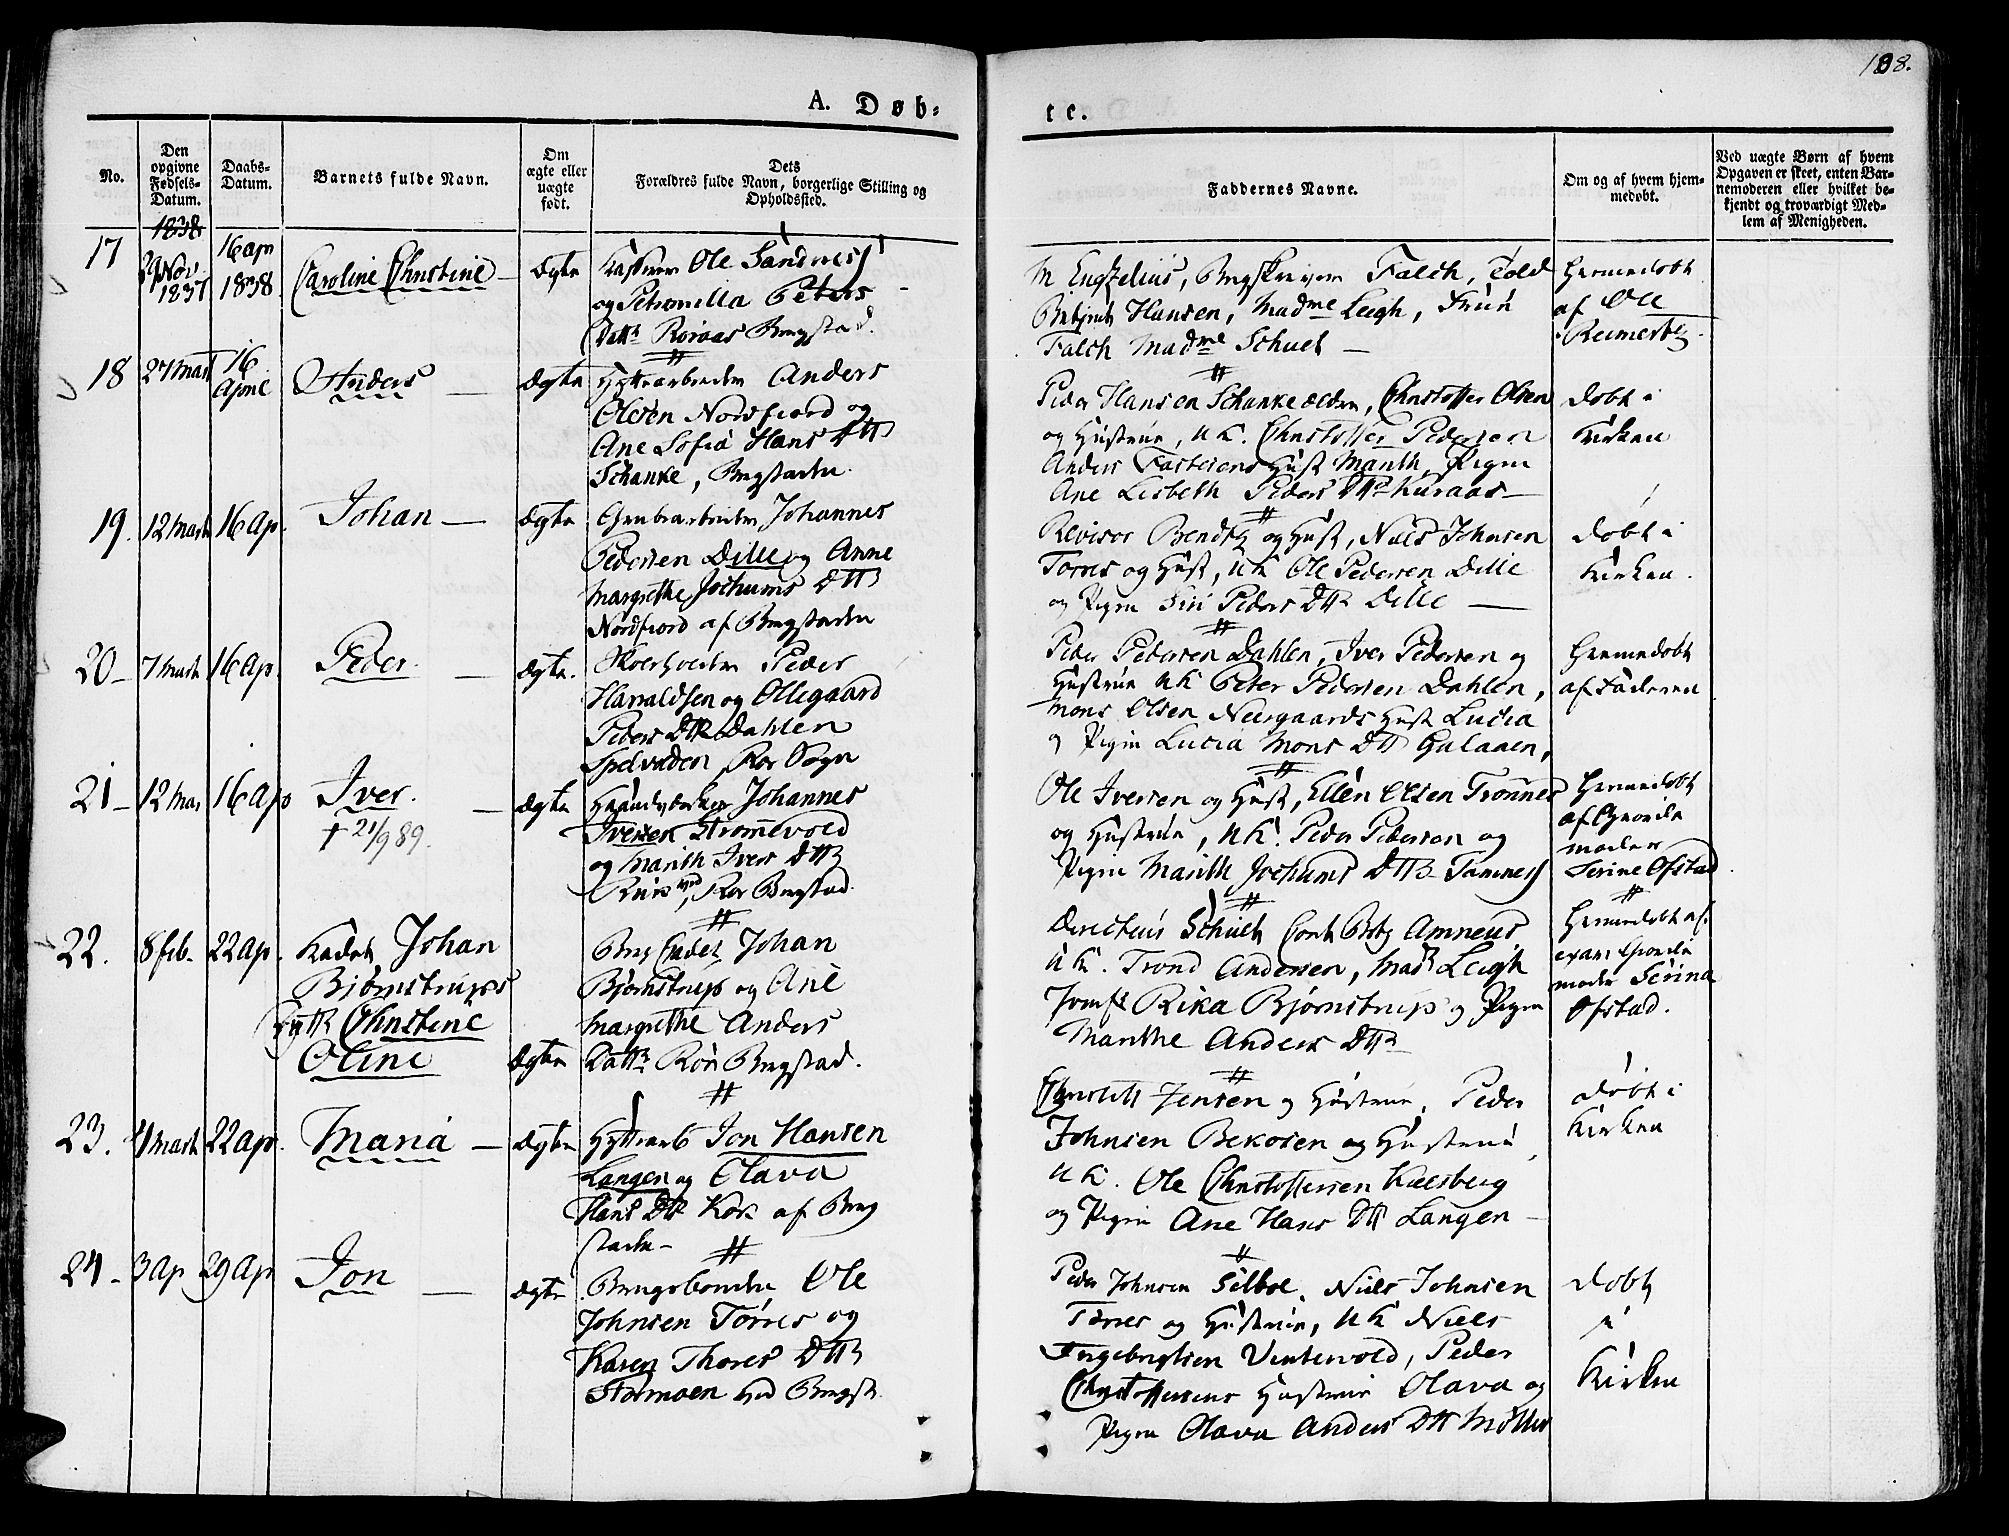 188.
A. Døb-
te.
No.
Den
opgivne
Fødsels-
Datum.
Daabs-
Datum.
Barnets fulde Navn.
Om
ægte eller
uægte
født.
Dets
Forældres fulde Navn, borgerlige Stilling og
Opholdssted.
Faddernes Navne.
Om og af hvem hjem-
medøbt.
Ved uægte Børn af hvem
Opgaven er skeet, enten Bar-
nemoderen eller hvilket be-
kjendt og troværdigt Med-
lem af Menigheden.
1838
17
29 Nov
1837
16 ap
1838
Caroline Christine
Ægte
Ole Sandnes
og Petronella Peters
Datt Røraas Bergstad.
Falch, Told
Hansen, Madme Leigh, Frue
Falch Madme Schult
Hiemedøbt
af Ole
18
27 Mart
16
April
Anders
Ægte
Hyttearbeider Anders
Olsen Nordfiord og
Ane Sofia Hans Dtt
Schanke, Bergstaden
Peder Hansen Schanke ældre, Christoffer Olsen
og Hustrue, UK. Christoffer Pedersen
Anders Hust Marith, Pigen
Ane Lisbeth Peders Dtt Kuraas
døbt i
Kirken
19.
12 Mart
16 Ap.
Johan
Ægte
Grubearbeider Johannes
Pedersen Dille og Anne
Margrethe Jochums Dtt
Nordfiord af Bergstaden
Revisor og Hust, Niels Johnsen
Torres og Hust, UK Ole Pedersen Dille
og Pigen Siri Peders Dtt Dille
døbt i
Kirken.
20
7 Mart
16 Ap.
Peder
Ægte.
Peder
Harraldsen og Ollegaard
Peders Dtt Dahlen
Ror Sogn
Peder Pedersen Dahlen, Iver Pedersen og
Hustrue UK Peter Pedersen Dahlen,
Mons Olsen Neergaards Hust Lucia
og Pigen Lucia Mons Dtt Galaaen,
Hiemedøbt
af Faderen
21
12 Mar
16 Ap
Iver.
† 21/9 89.
Ægte
Haandværker Johannes
Iversen Strømmevold
og Marith Ivers Dtt
Ror Bergstad.
Ole Iversen og Hust, Ellen Olsen Trønnes
og Hustrue, UK. Peder Pedersen og
Pigen Marith Jochums Dtt Tamnes
Hiemedøbt
af Giorde
moder
Serine Ofstad
22.
8 feb.
22 ap.
Kadet Johan
Bjørnstrups
Dtt Christine
Oline
Ægte
Berg Cadet Johan
Bjørnstrup og Ane
Margrethe Anders
Datt Rør Bergstad.
Directeur Schult Amneus
UK. Trond Andersen, Mad Leigh
Jomf Rika Bjørnstrup og Pigen
Marithe Anders Dtt
Hiemedøbt af
exam Giorde
moder Serina
Ofstad.
23.
4 Mart
22 ap.
Maria
Ægte
Hyttearb Jon Hansen
Langen og Olava
Hans Dtt Kørk af Berg
staden
Jensen og Hustrue, Peder
Johnsen Bekosen og Hustrue
UK. Ole Christoffersen Kalsberg
og Pigen Ane Hans Dtt Langen
døbt i
Kirken
24
3 Ap
29 Ap
Jon
Ægte
Brugsbonden Ole
Johnsen Torres og
Karen Thores Dtt
Stormoen ved Bergst
Peder Johnsen Silboe, Niels Johnsen
Torres og Hustrue, UK Niels
Ingebrigtsen Vintervold, Peder
Christoffersens Hustrue Olava og
Pigen Olava Anders Dtt Møller
døbt
i
Kirken